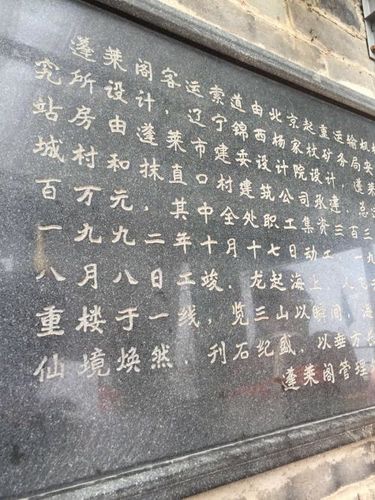 蓬莱阁客运索道由北京起重运输机
究所设计，辽宁锦西杨家杖矿务局安
站房由蓬莱市建委设计院设计，蓬莱
城村和抹直口村建筑公司承建，总
百万元，其中全处职工集资三百三
一九九二年十月十七日动工，一九
八月八日工竣。龙起海上，人飞
重楼于一线，览三山以瞬间，海
仙境焕然，刊石纪盛，以垂万
蓬莱阁管理